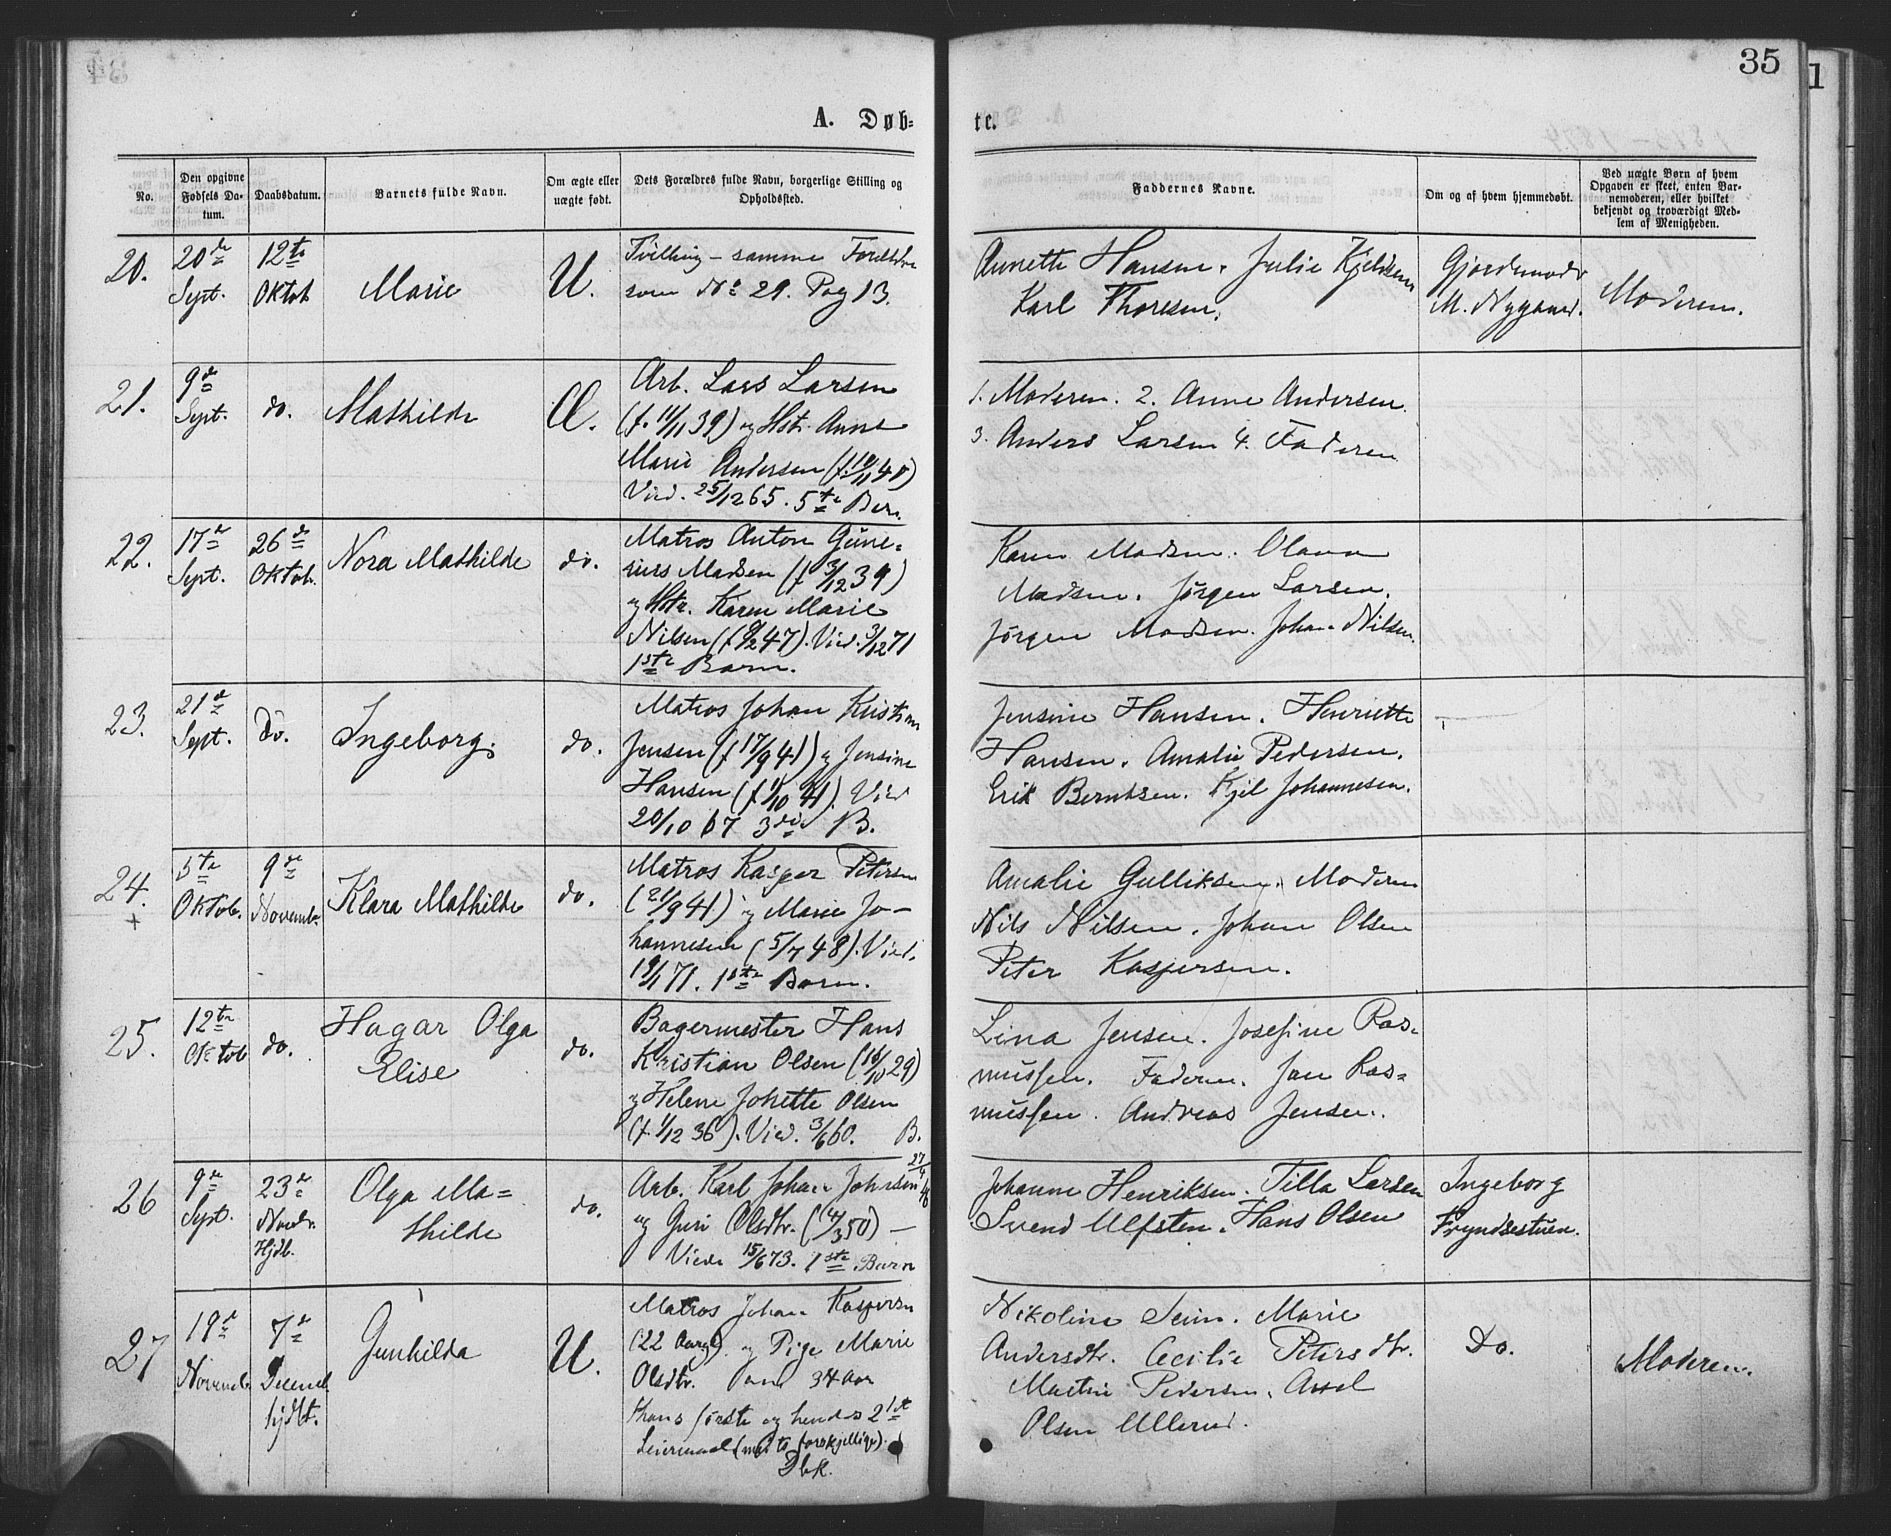 35
1
A. Døb=
te.
No.
Den opgivne Fødsels Da-tum.
Daabsdatum.
Barnets fulde Navn.
Om ægte eller uægte født.
Dets Forældres fulde Navn, borgerlige Stilling og Opholdssted.
Faddernes Navne.
Om og af hvem hjemmedøbt.
Ved uægte Børn af hvem Opgaven er skeet, enten Bar-nemoderen, eller hvilket bekjendt og troværdigt Med-lem af Menigheden.
20.
20de Sept.
12te Oktob.
Marie
U.
Tvilling – samme Forældre
som No 29. Pag 13.
Annette Hansen. Julie Kjeldsen
Karl Thoresen.
Gjordemoder
M. Nygaard.
Moderen.
21.
9de Sept.
do.
Mathilde
Æ.
Arb. Lars Larsen
(f. 11/11 39) og Hstr. Anne
Marie Andersen (f. 12/11 40)
Vied. 25/12 65. 5te Barn.
1. Moderen. 2. Anne Andersen.
3. Anders Larsen 4. Faderen
22.
17de Sept.
26de Oktob.
Nora Mathilde
do.
Matros Anton Gune-
rius Madsen (f 3/12 39)
og Hstr. Karen Marie
Nilsen (f 9/2 47). Vied. 3/12 71
1ste Barn.
Karen Madsen. Olava
Madsen. Jørgen Larsen.
Jørgen Madsen. Johan Nilsen.
23.
21de Sept.
Do.
Ingeborg.
do.
Matros Johan Kristian
Jensen (f 17/9 41) og Jensine
Hansen (f 1/10 41). Vied
20/10 67 3die B.
Jensine Hansen. Henriette
Hansen. Amalie Pedersen.
Erik Berntsen. Kjel Johannesen.
24.
+
5te Oktob.
9de Novemb.
Klara Mathilde
do.
Matros Kasper Petersen
(21/9 41) og Marie Jo-
hannesen (5/7 48). Vied.
19/1 71. 1ste Barn.
Amalie Gulliksen. Moderen
Nils Nilsen. Johan Olsen
Peter Kaspersen.
25.
12te Oktob
do.
Hagar Olga
Elise
do.
Bagermester Hans
Kristian Olsen (16/10 29)
og Helene Johette Olsen
(f. 1/12 36). Vied. 3/6 60. B.
Lina Jensen. Josefine Ras-
mussen. Faderen. Jan Ras-
mussen. Andreas Jensen.
26
9de Sept.
23de Novbr.
Hjdb.
Olga Ma=
thilde
do.
Arb. Karl Johan Johnsen 27/4 48
og Guri Olsdtr. (4/3 50) –
Viede 15/6 73. 1ste Barn
Johanne Henriksen. Tilla Larsen
Svend Ulfsten. Hans Olsen
Ingeborg
Fryndsestuen.
27
19de Novemb.
7de Decemb.
hjdbt.
Gunhilda
U.
Matros Johan Kaspersen
(22 Aar gl) og Pige Marie
Olsdtr. 34 Aar
Hans første og hendes 2det
Leiermaal (med to forskjellige).
Dbk.
Nikoline Seim. Marie
Andersdtr. Cecilie Petersdtr.
Martin Pedersen. Axel
Olsen Ullerud.
Do.
Moderen.